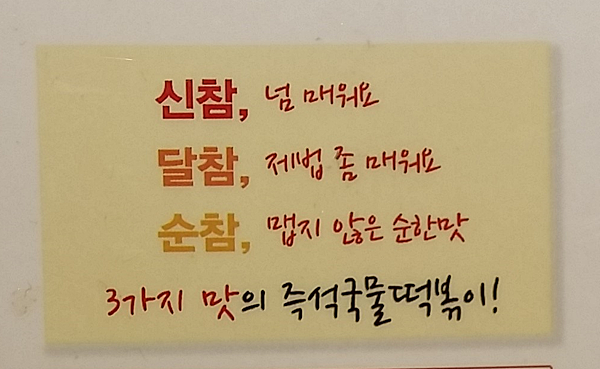 신참, 넘 매워요
달참, 제법 좀 매워요
순참, 맵지 않은 순한맛
3가지 맛의 즉석국물떡볶이!